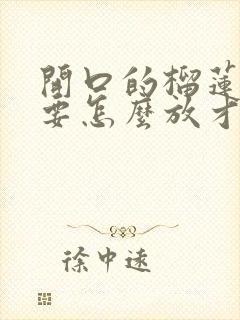 開口的榴蓮
要怎麼放才
徐中遠